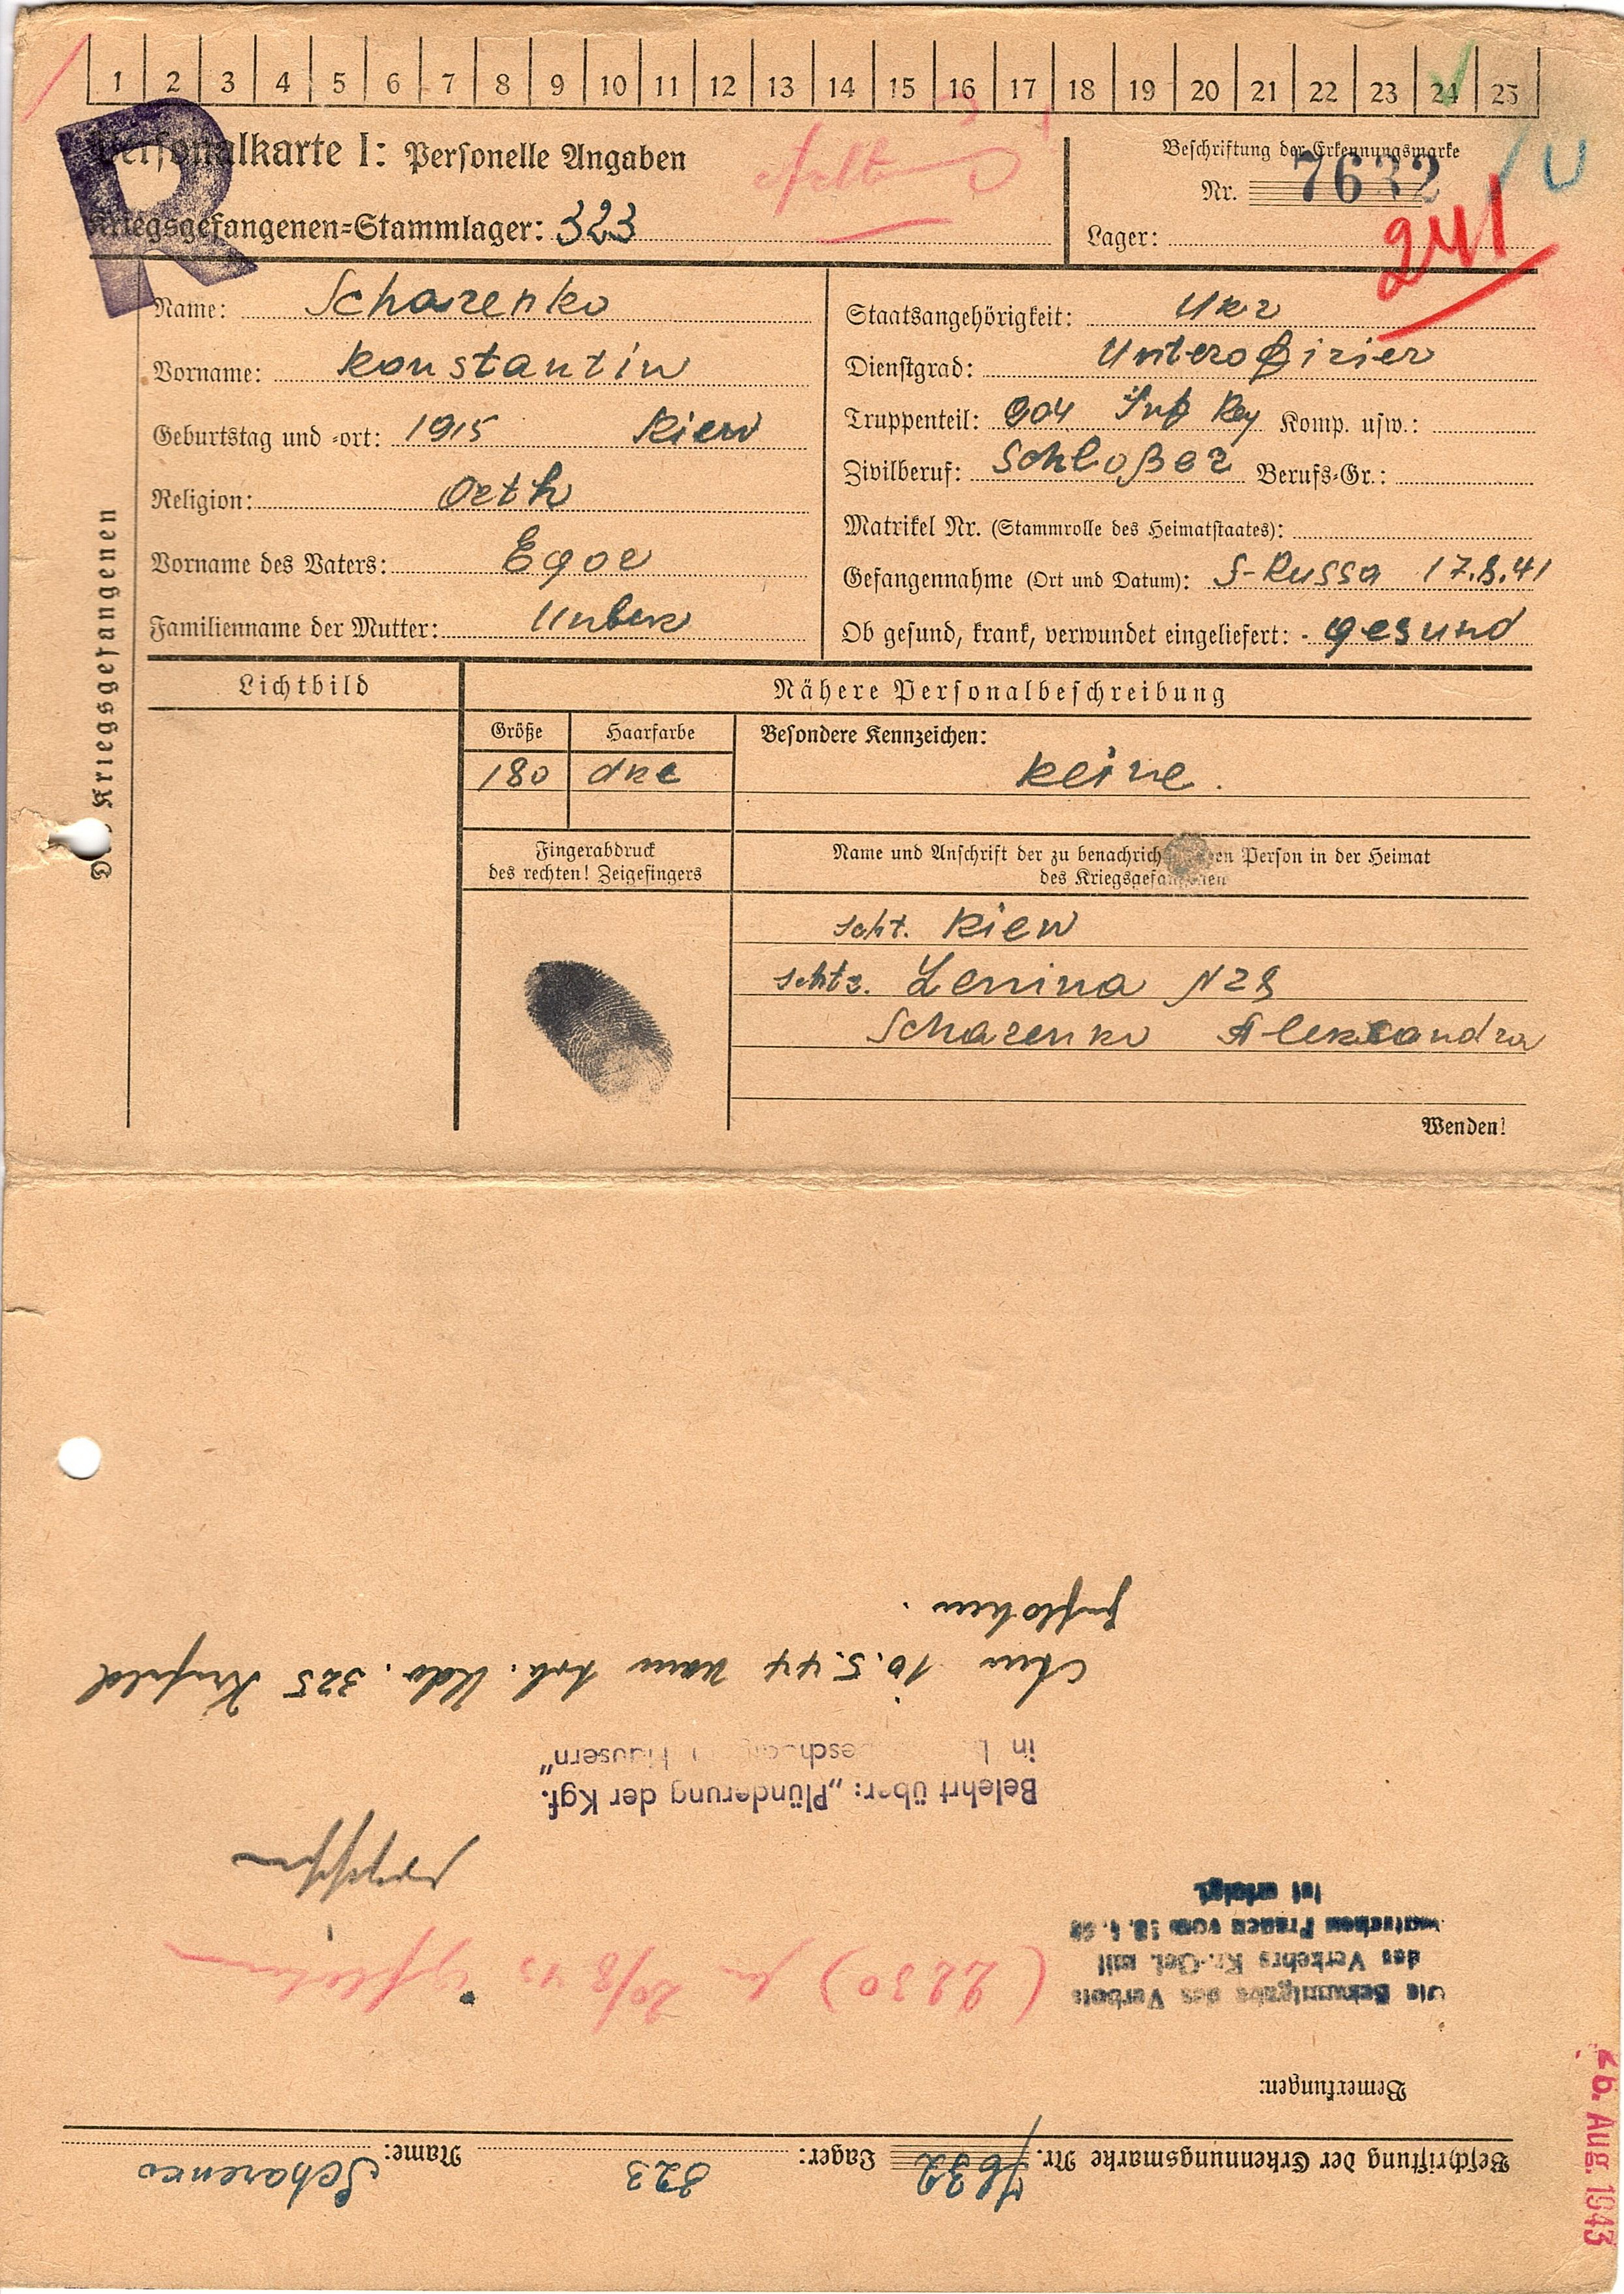 1 2 3 4 5 6 7 8 9 10 11 12 13 14 15 16 17 18 19 20 21 22 23 24 25
R
Personalkarte I: Personelle Angaben
Kriegsgefangenen-Stammlager: 323
Beschriftung der Erkennungsmarke
Nr. 7632
Lager:
241
U
Kriegsgefangenen
Name: Scharenko
Vorname: Konstantin
Geburtstag und -ort: 1915 Kiew
Religion: Orth
Vorname des Vaters: Egor
Familienname der Mutter: Unbek
Staatsangehörigkeit: Ukr
Dienstgrad: Unterofizier
Truppenteil: 904 Inf Reg Komp. usw.:
Zivilberuf: Schloßer Berufs-Gr.:
Matrikel Nr. (Stammrolle des Heimatstaates):
Gefangennahme (Ort und Datum): S-Russa 17.8.41
Ob gesund, krank, verwundet eingeliefert: gesund
Lichtbild
Nähere Personalbeschreibung
Größe Haarfarbe Besondere Kennzeichen:
180 dkl keine.
Fingerabdruck
des rechten! Zeigefingers
Name und Anschrift der zu benachrichtigenden Person in der Heimat
des Kriegsgefangenen
scht. Kiew
schtr. Lenina N28
Scharenko Aleksandra
Wenden!
Beschriftung der Erkennungsmarke Nr. 7632 Lager: 323 Name: Scharenko
Bemerkungen:
Die Bekanntgabe des Verbots
des Verkehrs Kr.-Gef. mit
Frauen vom
ist erfolgt.
(2230) 20/8 43 geflohen
Belehrt über: „Plünderung der Kgf.
in Häusern"
Am 10.5.44 vom Arb. Kdo. 325 Krefeld
geflohen.
26. Aug. 1943